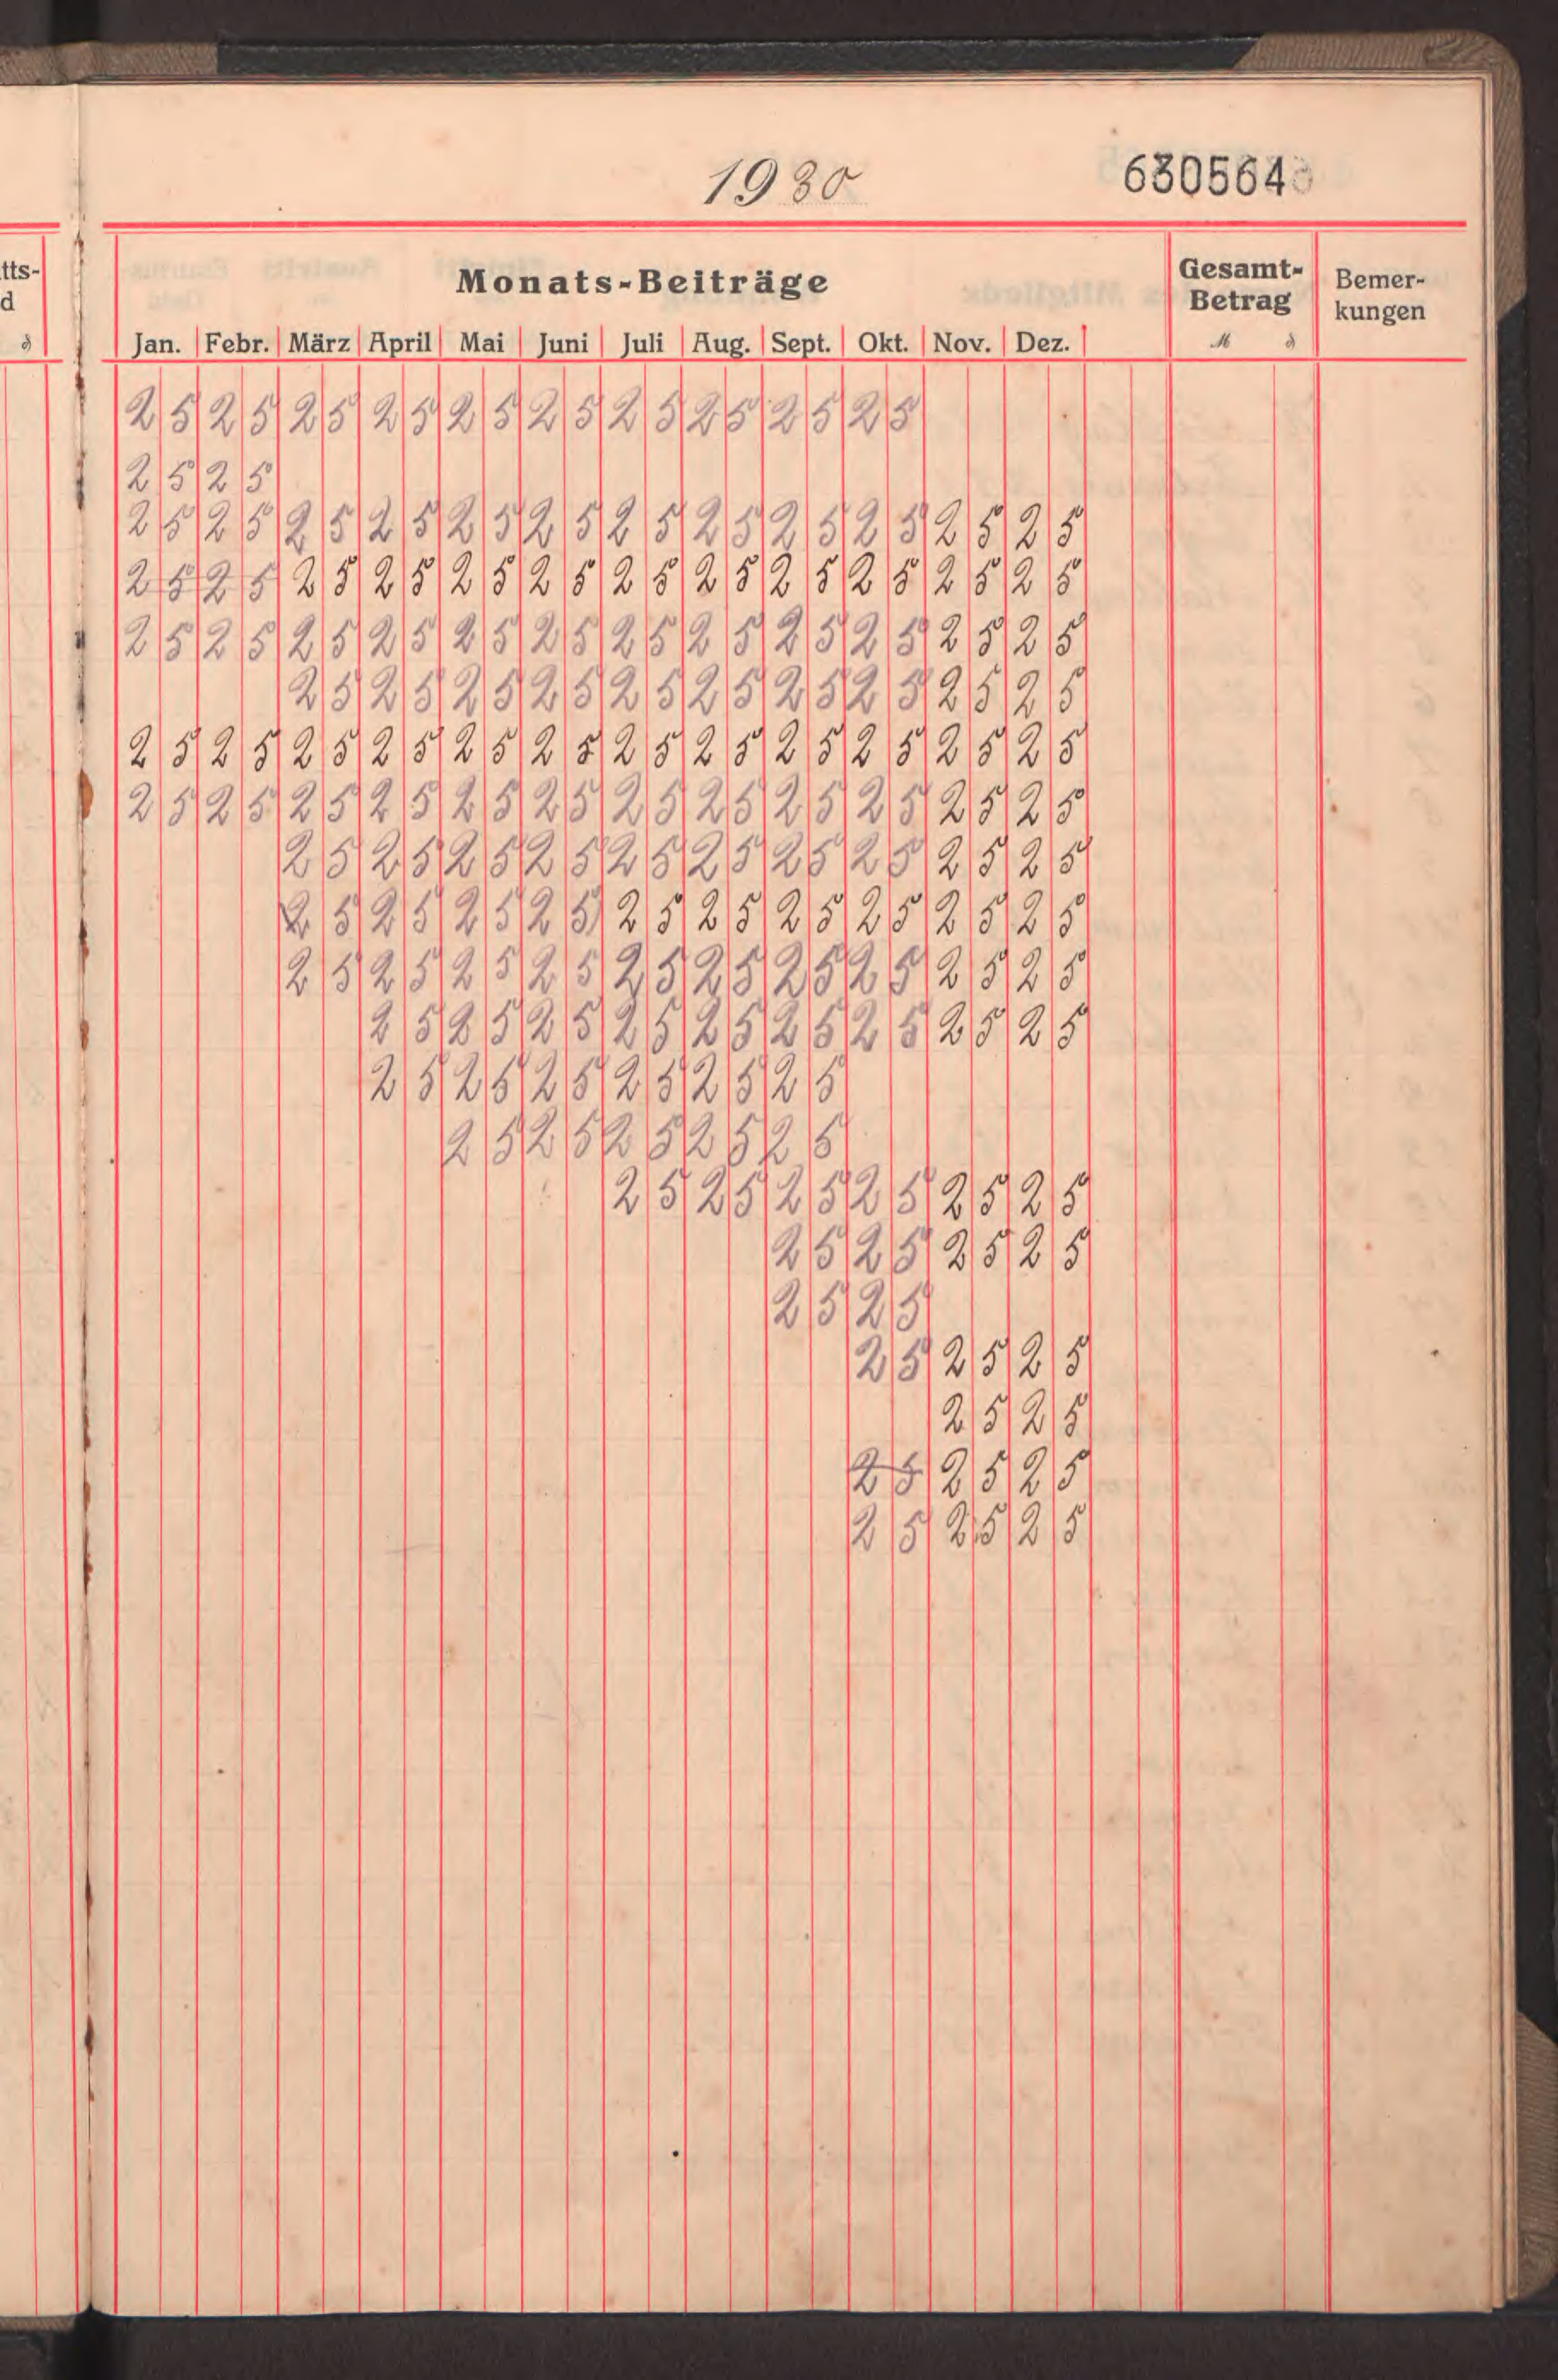 1930 630564
tts-
d
Monats-Beiträge Gesamt-Betrag Bemer-kungen
Jan. Febr. März April Mai Juni Juli Aug. Sept. Okt. Nov. Dez. M ₰
25 25 25 25 25 25 25 25 25 25
25 25
25 25 25 25 25 25 25 25 25 25 25 25
25 25 25 25 25 25 25 25 25 25 25 25
25 25 25 25 25 25 25 25 25 25 25 25
25 25 25 25 25 25 25 25 25 25
25 25 25 25 25 25 25 25 25 25 25 25
25 25 25 25 25 25 25 25 25 25 25 25
25 25 25 25 25 25 25 25 25 25
25 25 25 25 25 25 25 25 25 25
25 25 25 25 25 25 25 25 25 25
25 25 25 25 25 25 25 25 25
25 25 25 25 25 25
25 25 25 25 25
25 25 25 25 25 25
25 25 25 25
25 25
25 25 25
25 25
25 25 25
25 25 25